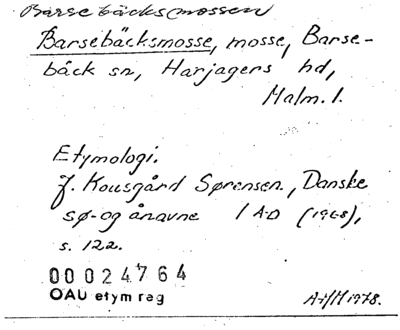 Barsebäcksmossen
Barsebäcksmosse, mosse, Barse-
bäck sn, Harjagers hd,
Malm. l.
Etymologi.
J. Kousgård Sørensen, Danske
sø- og ånavne 1 A-D (1968),
s. 122.
00024764
OAU etym reg
1978.